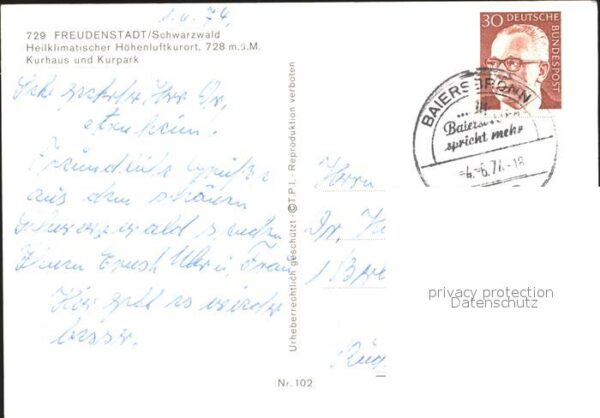 1.6.74,
729 FREUDENSTADT/Schwarzwald
Heilklimatischer Höhenluftkurort, 728 m.ü.M.
Kurhaus und Kurpark
Sehr geehrter Herr Dr,
Freundliche Grüße
aus dem schönen
Schwarzwald senden
Ihnen Ernst u. Frau
Hier geht es wieder
besser.
Urheberrechtlich geschützt · © T.P.I. · Reproduktion verboten
Nr. 102
30 DEUTSCHE BUNDESPOST
BAIERSBRONN
... in
Baiersbronn
spricht mehr
-4.-6.74-18
Herrn
Dr.
privacy protection
Datenschutz